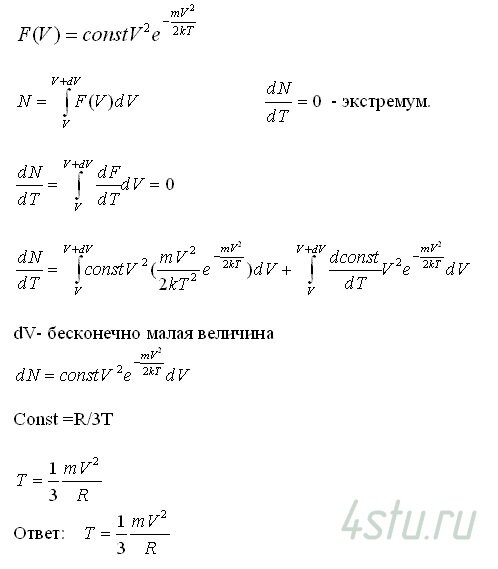 F(V) = constV²e^(-mV²/2kT)
N = ∫_V^(V+dV) F(V)dV    dN/dT = 0 - экстремум.
dN/dT = ∫_V^(V+dV) dF/dT dV = 0
dN/dT = ∫_V^(V+dV) constV²(mV²/2kT² e^(-mV²/2kT))dV + ∫_V^(V+dV) dconst/dT V²e^(-mV²/2kT)dV
dV- бесконечно малая величина
dN = constV²e^(-mV²/2kT)dV
Const =R/3T
T = 1/3 mV²/R
Ответ: T = 1/3 mV²/R
4stu.ru